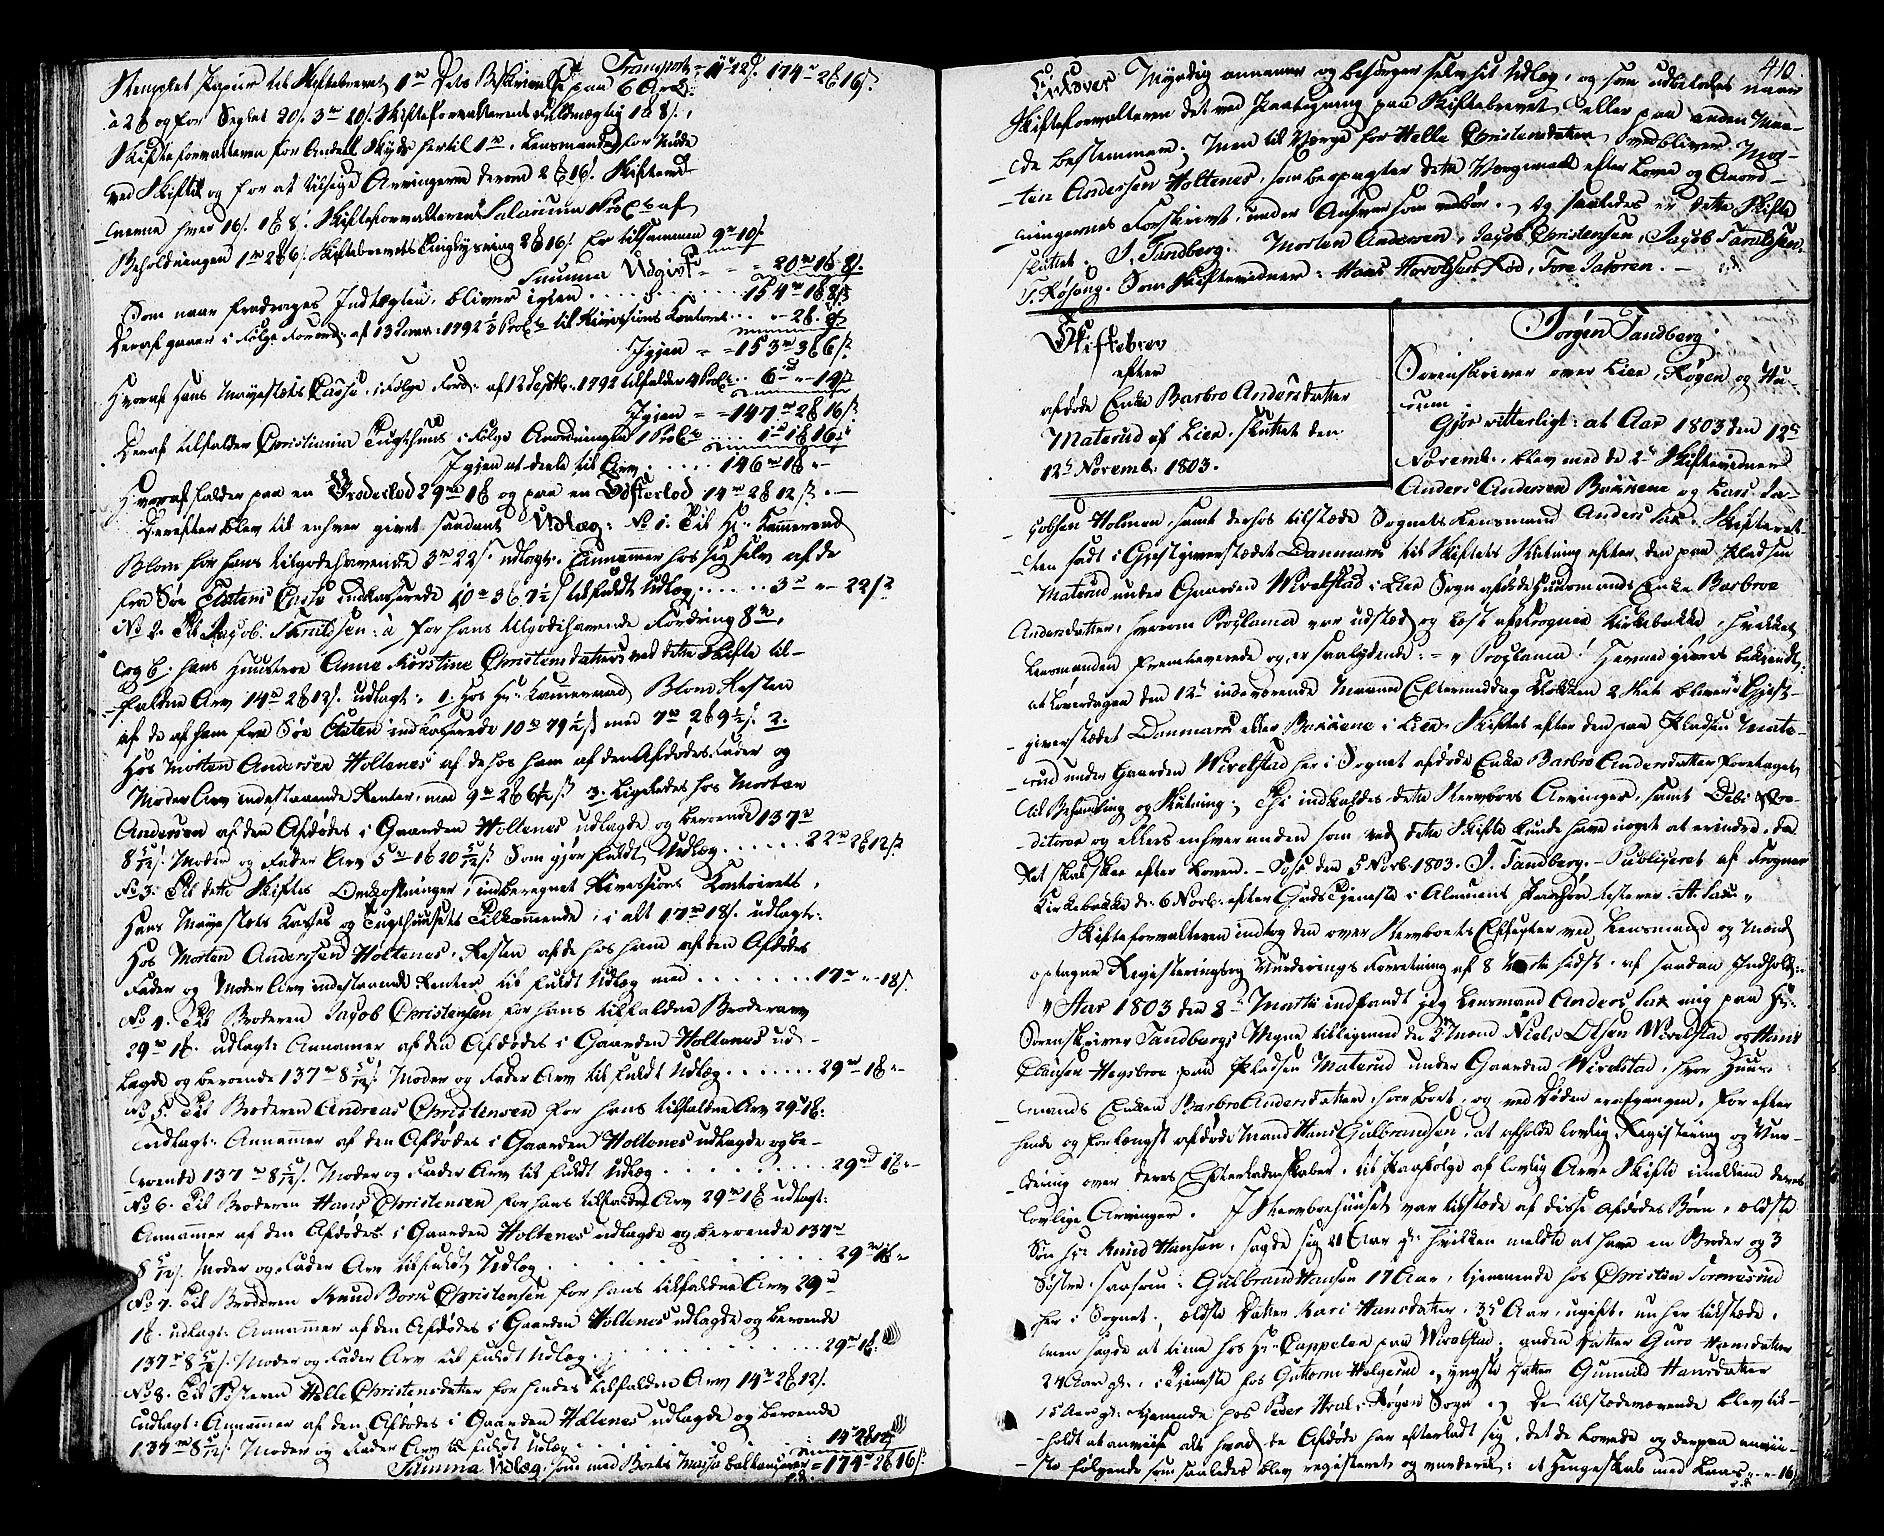 Transport = 11 rd 22 s. 174 rd 2 o 16 s.
Stemplet Papier til Skiftebrevet 1 rd Dets Beskrivelse paa 6 Ark
à 2 o og for Seglet 20 s. 3 rd 20 s. Skifteforvalterens Fuldmægtig 1 o 8 s.,
Skifteforvalteren for Andeel Skyds hertil 1 rd. Lensmanden for Møde
ved Skiftet og for at tilsige Arvingerne derved 2 o 16 s. Skiftevid-
nerne hver 16 s. 1 o 8 s. Skifteforvalterens Salarium 1 Proc.to af
Beholdningen 1 rd 2 o 6 s. Skiftebrevets Tinglysning 2 o 16 s. Er tilsammen 9 rd 10 s.
Summa Udgivt = = = 20 rd 1 o 8 s.
Som naar fradrages Indtægten, bliver igien . . . . . . 154 rd 1 o 8 s.
Deraf gaaer i Følge Forord: af 13 1792 ½ Proc.to til Rivisions Kontoret . . - 2 o. 8 s.
Igjen = = 153 rd 3 o 6 s.
Hvoraf Hans Mayestæts Casse, i Følge Ford: af 12 Septbr. 1792 tilfalder 4 Proc.to . . 6 rd - 14 s.
Igjen = = 147 rd 2 o 16 s.
Deraf tilfalder Christiania Tugthuus i Følge Anordningen 1 Proc.to . . . . 1 rd 1 o 16 s.
Igjen at deele til Arv . . . . . 146 rd 1 o -
Hvoraf falder paa en Broderlod 29 rd 1 o og paa en Søsterlod 14 rd 2 o 12 s. -
Derefter blev til enhver givet saadant Udlæg: No 1. Til Hr. Kammerraad
Blom for hans tilgodehavende 3 rd 22 s. udlagt: Annammer hos sig selv af de
fra Søe Etatens Casse indkasserede 10 rd 3 o 7½ s. til fuldt Udlæg . . . . . . 3 rd - 22 s.
No 2. Til Jacob Taraldsen: a for hans tilgodehavende Fordring 8 rd,
og b. hans Hustroe Anne Kirstine Christensdatters ved dette Skifte til-
faldne Arv 14 rd 2 o 12 s. udlagt: 1. Hos Hr. Kammerraad Blom Resten
af de af ham fra Søe Etaten indkasserede 10 rd 79½ s. med 7 rd 2 o 9½ s. 2.
Hos Morten Andersen Holtenes af de hos ham af den Afdødes Fader og
Moder Arv indestaaende Renter, med 9 rd 2 o 6½ s. 3. Ligeledes hos Morten
Andersen af den Afdødes i Gaarden Holtenes udlagde og beroende 137 rd
8 5/12 s. Moder og Fader Arv 5 rd 1 o 20 5/12 s. Som gjør fuldt Udlæg . . . . . . 22 rd 2 o 12 s.
No 3. Til dette Skiftes Omkostninger, indberegnet Rivisions Kontoirets,
Hans Mayestæts Casses og Tugthuusets Tilkommende, i alt 17 rd 18 s. udlagt:
Hos Morten Anderssen Holtenes, Resten af de hos ham af den Afdødes
Fader og Moder Arv indestaaende Renter til fuldt Udlæg med . . . . . . . . 17 rd - 18 s.
No 4. Til Broderen Jacob Christensen for hans tilfaldne Broderarv
29 rd 1 o. udlagt: Annamer af den Afdødes i Gaarden Holtenes ud-
lagde og beroende 137 rd 8 5/12 s. Moder og Fader Arv til fuldt Udlæg . . . . . . . 29 rd 1 o -
No 5. Til Broderen Andreas Christensen for hans tilfaldne Arv 29 rd 1 o.
Udlagt: Annammer af den Afdødes i Gaarden Holtenes udlagde og be-
roende 137 rd 8 5/12 s. Moder og Fader Arv til fuldt Udlæg . . . . . . . . . . 29 rd 1 o -
No 6. Til Broderen Hans Christensen for hans tilfaldne Arv 29 rd 1 o udlagt:
Annammer af den Afdødes i Gaarden Holtenes udlagde og beroende 137 rd
8 5/12 s. Moder og Fader Arv til fuldt Udlæg . . . . . . . . . . . 29 rd 1 o -
No 7. Til Broderen Knud Bork Christensen for hans tilfaldne Arv 29 rd
1 o. udlagt: Annammer af den Afdødes i Gaarden Holtenes udlagde og beroende
137 rd 8 5/12 s. Moder og Fader Arv til fuldt Udlæg . . . . . . . . . . 29 rd 1 o.
No 8. Til Søsteren Helle Christensdatter for hendes tilfaldne Arv 14 rd 2 o 12 s.
Udlagt: Annammer af den Afdødes i Gaarden Holtenes udlagde og beroende
137 rd 8 5/12 s. Moder og Fader Arv til fuldt Udlæg . . . . . . . . . . 14 rd 2 o 12 s.
Summa Udlæg, som med Boets Massa balancerer = 174 rd 2 o 16 s.
410.
Enhver Myndig annamer og besørger selv sit Udlæg, og som udbetales naar
Skifteforvalteren det ved Paategning paa Skiftebrevet, eller paa anden Maa-
de bestemmer; Men til Værge for Helle Christensdatter vedbliver Mor-
ten Anderssen Holtenes, som beqvagter dette Værgemaal efter Loven og Anord-
ningernes Forskrivt, under Ansvar som vedbør. Og saaledes er dette Skifte
sluttet. J. Tandberg. Morten Andersen, Jacob Christensen, Jacob Taraldsen.
Som Skiftevidner: Hans Haroldsen Rød, Tore Jahren.
Skiftebrev
efter
afdøde Enke Barbro Andersdatter
Materud af Lier, sluttet den
12te Novemb: 1803.
Jørgen Tandberg
Sorenskriver over Lier, Røgen og Hu-
rum
Gjør vitterligt: at Aar 1803 den 12te
Novemb:, blev med de 2de Skiftevidner
Anders Andersen Braaene og Lars Ja-
cobsen Holmen, samt derhos tilstæde Sognets Lensmand Anders Sax, Skifteret-
ten sadt i Gjestgiverstædet Danmark til Skiftets Slutning efter den paa Pladsen
Materud under Gaarden Wivelstad i Lier Sogn afdøde Huusmands Enke Barbroe
Andersdatter, hvorom Proclama var udstæd og læst af Frogner Kirkebakke, hvilket
Lensmanden fremleverede og er saalydende: - "Proclama! Hermed gives bekiendt,
at Løverdagen den 12te indeværende Maaned Eftermiddag Klokken 2 slet bliver i Gjest-
giverstædet Danmark eller Braaene i Lier, Skiftet efter den paa Pladsen Mate-
rud under Gaarden Wivelstad her i Sognet afdøde Enke Barbro Andersdatter foretaget
til Behandling og Slutning; Thi indkaldes dette Stervboes Arvinger, samt Debi- Cre-
ditorer og ellers enhver anden som ved dette Skifte kunde have noget at erindre, da
Ret skal skee efter Loven. - Foss den 5 Novb. 1803. J. Tandberg. - Publiseret af Frogner
Kirkebakke d: 6 Novb. efter Guds Tjeneste i Almuens Paahør tesserer. A. Sax."
Skifteforvalteren indtog den over Stervboets Effecter ved Lensmand og Mænd
optagne Registerings og Vurderings Forretning af 8 Martii sidst. af saadan Indhold:
"Aar 1803 den 8de Martii indfandt jeg Lensmand Anders Sax mig paa Hr.
Sorenskriver Tandbergs Vegne tilligemed de 2de Mænd Niels Olsen Wivelstad og Hans
Clausen Hegsbroe paa Pladsen Materud under Gaarden Wivelstad, hvor Huus-
mands Enken Barbro Andersdatter, har boet, og ved Døden er afgangen, for efter
hende og for længst afdøde Mand Hans Gulbrandsen, at afholde lovlig Registering og Vur-
dering over deres Efterladenskaber, til Paafølge af lovlig Arve Skifte imellem deres
lovlige Arvinger. I Stervboehuuset var tilstæde af disse Afdødes Børn, ældste
Søn hr: Knud Hansen, sagde sig 21 Aar g: hvilken meldte at have en Broder og 3
Søstre, saasom: Gulbrand Hansen 17 Aar, tjenende hos Christen Sørumsrud
her i Sognet; ældste Datter Kari Hansdatter, 35 Aar, ugift, nu her tilstæde,
men sagde at tiene hos Hr. Cappelen paa Wivelstad; anden Datter Guro Hansdatter
24 Aar gl:, i Tjeneste hos Guttorm Helgerud, yngste Datter Gunnild Hansdatter
15 Aar gl: tjenende hos Peder Hval i Røgen Sogn. De tilstædeværende blev til-
holdt at anviise alt hvad de Afdøde har efterladt sig, det de lovede og derpaa anvii-
ste følgende som saaledes blev registeret og vurderet: et Hengeskab med Laas - - 16 s.